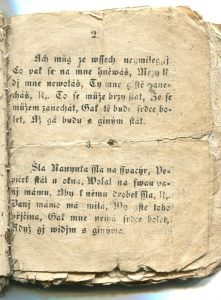 2.
Ach můg ze wssech neymileg
Co pak se na mne hněwáš, Mezy
dj mne newotáš, Ty mne gistě zane-
cháš, R,. To se může brzy stát, Že se
můžem zanechát, Gak tě bude srdce bo-
let, Až gá budu s giným stát.
3.
Šla Nanynka ssla na sspacýr, Pe-
pjček stál u okna, Wolal na swau pa-
nj mámu, Aby k němu dogít ssla, R,.
Panj mámo má milá, Wy gste toho
přjčina, Gak mne newá srdce bolet,
Když gj widjm s ginýma.